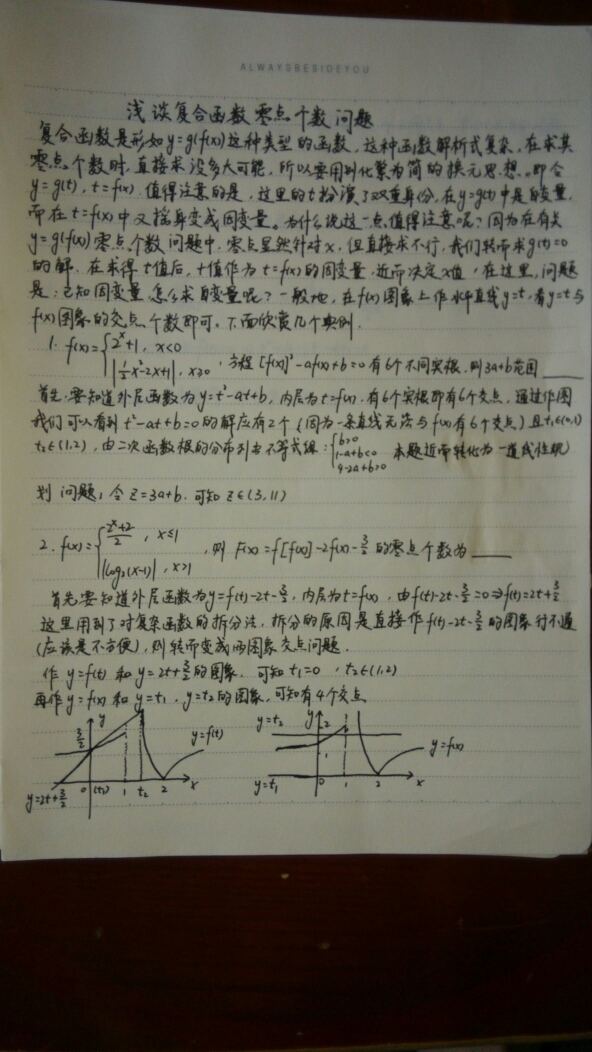 ALWAYSBESIDEYOU
浅谈复合函数零点个数问题
复合函数是形如y=g(f(x))这种类型的函数,这种函数解析式复杂,在求其
零点个数时,直接求没多大可能,所以要用到化繁为简的换元思想。即令
y=g(t),t=f(x).值得注意的是,这里的t扮演了双重身份,在y=g(t)中是自变量,
而在t=f(x)中又摇身变成因变量。为什么说这一点值得注意呢?因为在有关
y=g(f(x))零点个数问题中,零点显然针对x,但直接求不行,我们转而求g(t)=0
的解.在求得t值后,t值作为t=f(x)的因变量,近而决定x值,在这里,问题
是:已知因变量,怎么求自变量呢?一般地,在f(x)图象上作水平直线y=t,看y=t与
f(x)图象的交点个数即可.下面欣赏几个典例.
1. f(x)={2^x+1, x<0
|½x²-2x+1|, x≥0 ,方程[f(x)]²-af(x)+b=0有6个不同实根,则3a+b范围____
首先,要知道外层函数为y=t²-at+b,内层为t=f(x).有6个实根即有6个交点,通过作图
我们可以看到t²-at+b=0的解应有2个(因为一条直线无法与f(x)有6个交点)且t₁∈(0,1)
t₂∈(1,2),由二次函数根的分布列出不等式组:{b>0
1-a+b<0
4-2a+b>0 本题近而转化为一道线性规
划问题,令z=3a+b.可知z∈(3,11)
2. f(x)={(2^x+2)/2 , x≤1
|log₂(x-1)|, x>1 ,则F(x)=f[f(x)]-2f(x)-3/2的零点个数为____
首先要知道外层函数为y=f(t)-2t-3/2,内层为t=f(x),由f(t)-2t-3/2=0⇒f(t)=2t+3/2
这里用到了对复杂函数的拆分法,拆分的原因是直接作f(t)-2t-3/2的图象行不通
(应该是不方便),则转而变成两图象交点问题.
作y=f(t)和y=2t+3/2的图象,可知t₁=0,t₂∈(1,2)
再作y=f(x)和y=t₁,y=t₂的图象,可知有4个交点
3/2 y y=f(t) y=2t+3/2 0 (t₁) 1 t₂ 2 x
y=t₂ y 1 y=f(x) y=t₁ 0 1 2 x